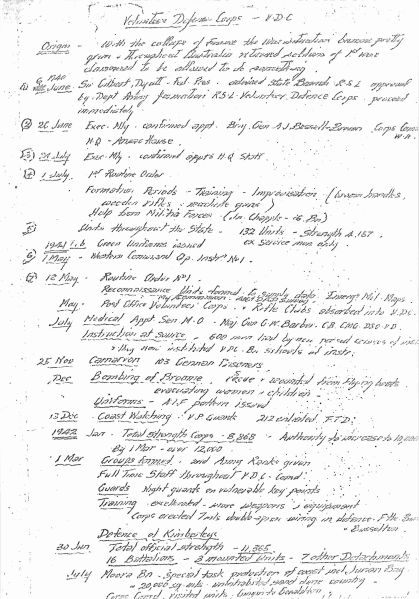 Volunteer Defence Corps - V.D.C
Origin - With the collapse of France the War situation became pretty
grim & throughout Australia returned soldiers of 1st War
clamoured to be allowed to do something
June Sir Gilbert Dyett - Fed. Pres - advised State Branch R.S.L approval
by Dept Army formation R.S.L Volunteer Defence Corps proceed
immediately
26 June Exec. Mtg. confirmed appt. Brig. Gen A.J. Bessell-Browne Corps
H.Q - Anzac House
July Exec. Mtg. confirmed appts H.Q Staff
1 July 1st Routine Order
Formation Periods - Training - Improvisation (broom handles,
wooden rifles - machine guns)
Help from Militia Forces (Jn. Chapple - 16 Bn)
Units throughout the State - 132 Units - Strength 4,157
1941 Feb Green Uniforms issued ex Service men only
1 May - Western Command Op. Instr No 1
12 May - Routine Order No 1
Reconnaissance Units formed to supply data
May - Post Office Volunteer Corps & Rifle Clubs absorbed into V.D.C.
July Medical Appt Sen M.O - Maj. Gen G.W. Barber C.B CMG DSO VD
Instruction at Source - 600 men
25 Nov Carnarvon 103 German Prisoners
Dec Bombing of Broome rescue & wounded from flying boats
evacuating women & children
Uniforms - A.I.F pattern issued
13 Dec Coast Watching V.P Guards 212 enlisted F.T.D.
1942 Jan - Total strength Corps - 8,868 - Authority to increase to
By 1 Mar - over 12,000
1 Mar Groups formed and Army Ranks given
Full Time Staff throughout V.D.C. Comd.
Guards Night guards on vulnerable key points
Training accelerated - more weapons & equipment
Corps erected 7 mls double apron wiring in defence
Busselton
Defence of Kimberleys
30 Jun Total official strength - 11,365
16 Battalions - 3 mounted Units - 7 other Detachments
July Moora Bn - Special task protection of coast incl. Jurien Bay
20,000 sq. mls uninhabited sand dune country -
visited units